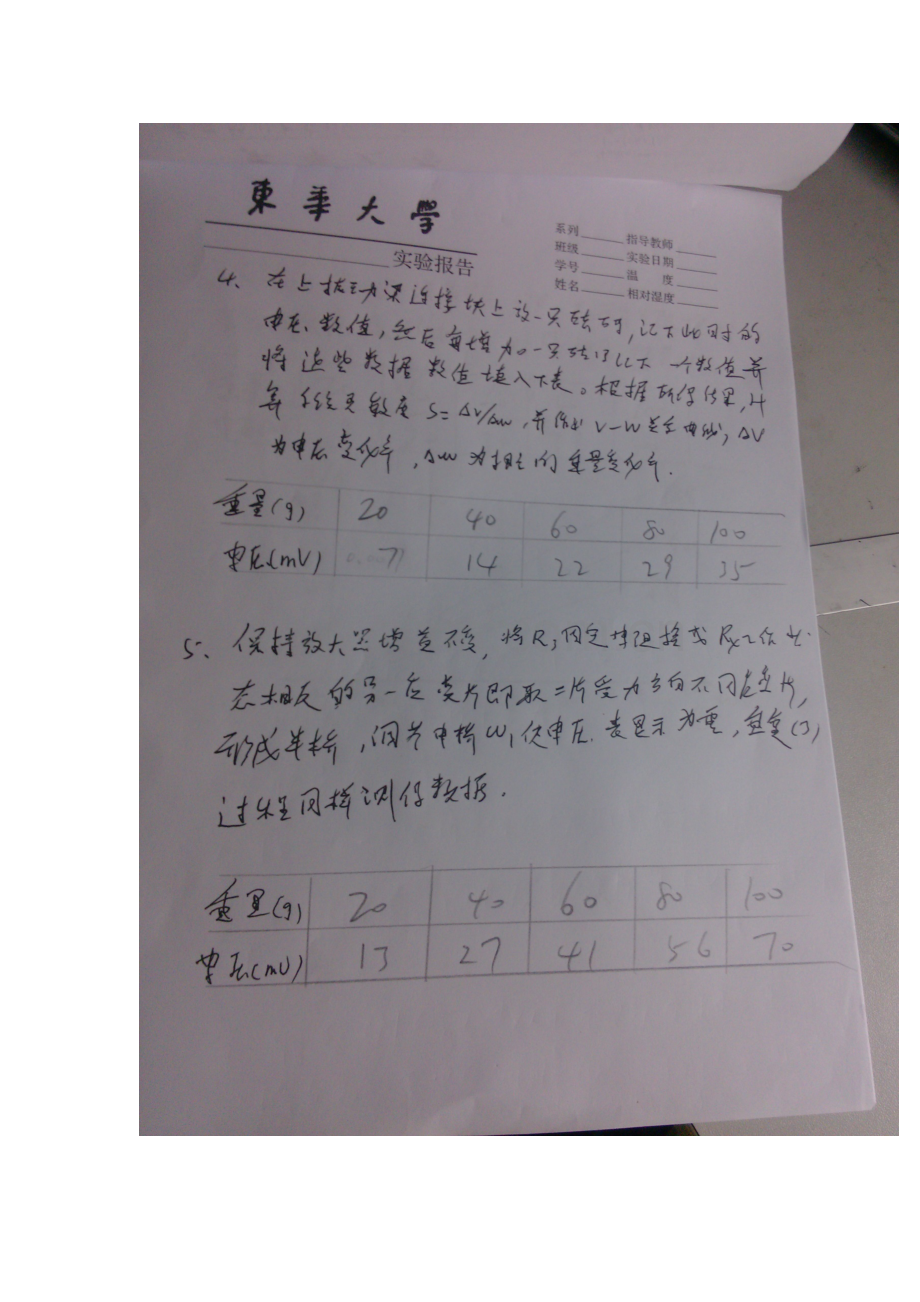 東華大學
实验报告
系列 指导教师
班级 实验日期
学号 温 度
姓名 相对湿度
4、在上 梁连接块上放一只砝码,记下此时的
电压数值,然后每增加一只砝码记下一个数值并
将这些数据数值填入下表。根据所得结果,计
算 灵敏度 S=ΔV/Δw,并作出 V-W 关系曲线,ΔV
为电压变化率,Δw为相应的重量变化率.
重量(g) 20 40 60 80 100
电压(mV) 7 14 22 29 35
5、保持放大器增益不变,将R3固定电阻换成 Rx工作状
态相反的另一应变片即取二片受力方向不同应变片,
形成半桥,调节电桥W1使电压表显示为零,重复(3)
过程同样测得数据.
重量(g) 20 40 60 80 100
电压(mV) 13 27 41 56 70